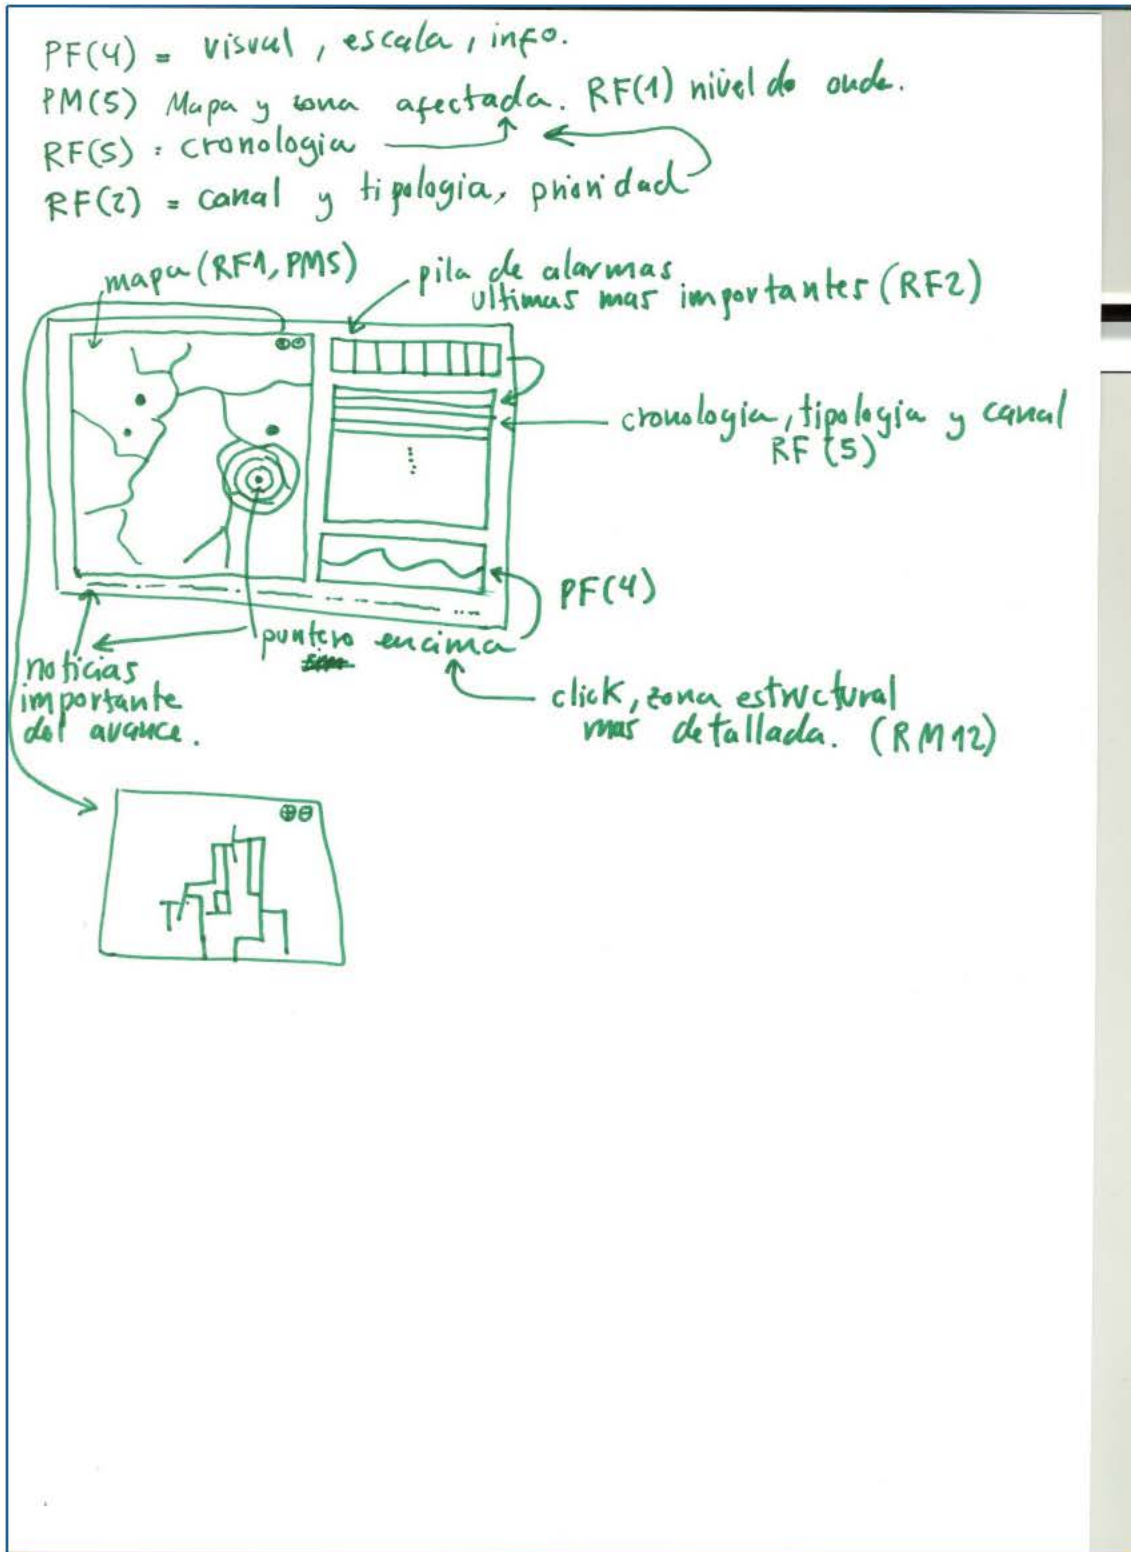 PF(4) = visual, escala, info.
PM(5) Mapa y zona afectada. RF(1) nivel de onda.
RF(5) : cronologia
RF(2) = canal y tipologia, prioridad
mapa (RF1, PM5)
pila de alarmas
ultimas mas importantes (RF2)
cronologia, tipologia y canal
RF(5)
PF(4)
puntero encima
noticias
importante
del avance.
click, zona estructural
mas detallada. (RM12)